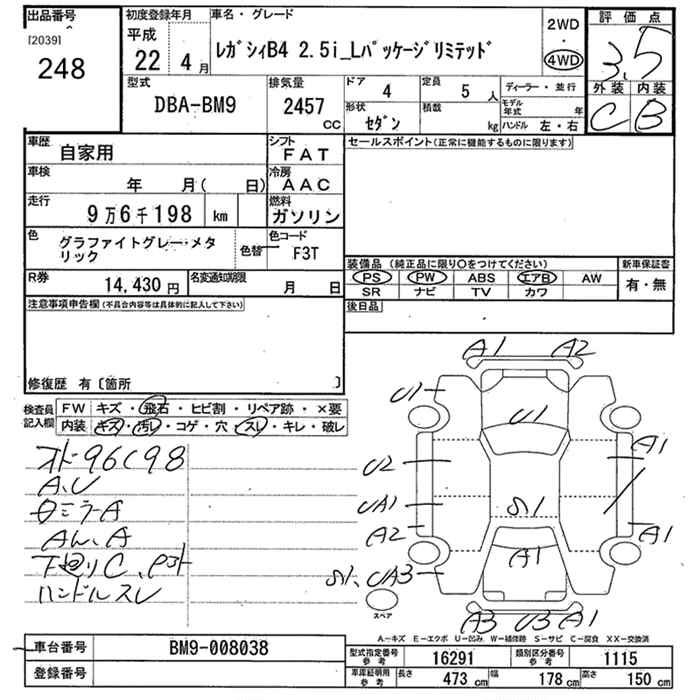 出品番号
[20391
248
初度登録年月
平成
22 4 月
車名・グレード
ﾚｶﾞｼｨB4 2.5i_Lﾊﾟｯｹｰｼﾞﾘﾐﾃｯﾄﾞ
2WD
・
4WD
評価点
3.5
外装 内装
C B
型式
DBA-BM9
排気量
2457
CC
ドア
4
定員
5 人
形状
ｾﾀﾞﾝ
積載
kg
ディーラー・並行
モデル
年式 年
ハンドル 左・右
車歴
自家用
シフト
FAT
車検
年 月( 日)
冷房
AAC
走行
9万6千198 km
燃料
ガソリン
色
グラファイトグレー・メタ
リック
色替
色コード
F3T
R券
14,430 円
名変通知期限
月 日
セールスポイント(正常に機能するものに限ります)
装備品 (純正品に限り〇をつけてください)
PS PW ABS エアB AW
SR ナビ TV カワ
新車保証書
有・無
後日品
注意事項申告欄(不具合内容等は具体的に記入して下さい)
修復歴 有〔箇所 〕
検査員
記入欄
FW キズ・飛石・ヒビ割・リペア跡・×要
内装 キズ・汚レ・コゲ・穴・スレ・キレ・破レ
オド96198
A、U
A
A
下廻りC、
ハンドルスレ
A1 A2
U1
U1
U2
A1
UA1
S1
A2
A1
A1
S1、UA3
A3 U3 A1
スペア
A—キズ E—エクボ U—凹み W—補修跡 S—サビ C—腐食 XX—交換済
車台番号
BM9-008038
登録番号
型式指定番号
参考
16291
類別区分番号
参考
1115
車庫証明用
参考
長さ 473 cm 幅 178 cm 高さ 150 cm